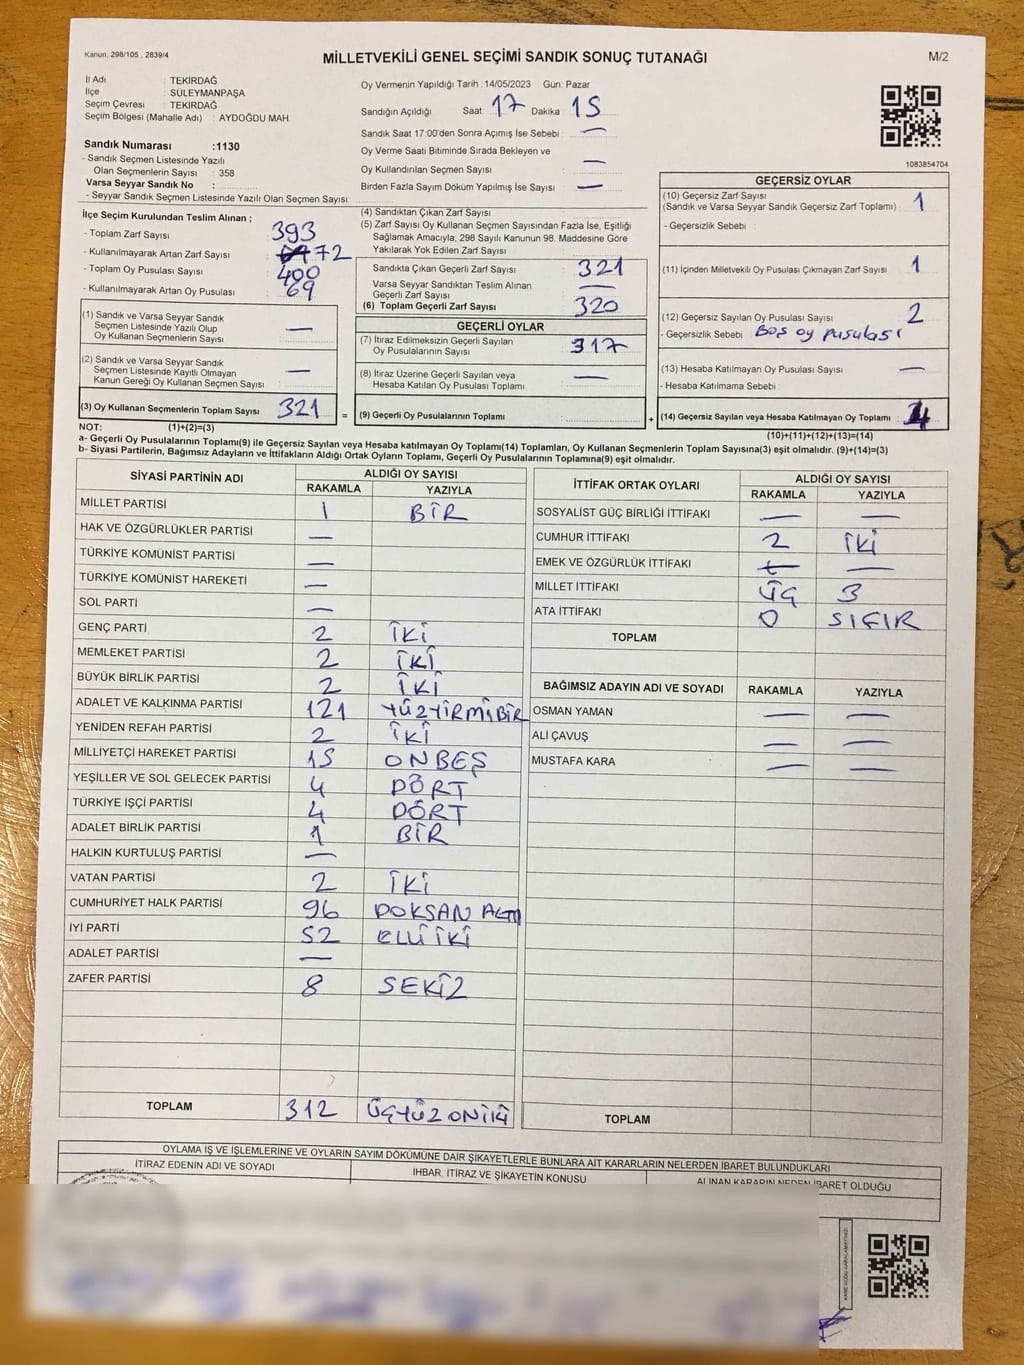 Kanun, 298/105 , 2839/4
MİLLETVEKİLİ GENEL SEÇİMİ SANDIK SONUÇ TUTANAĞI
M/2
İl Adı : TEKİRDAĞ
İlçe : SÜLEYMANPAŞA
Seçim Çevresi : TEKİRDAĞ
Seçim Bölgesi (Mahalle Adı) : AYDOĞDU MAH.
Sandık Numarası :1130
- Sandık Seçmen Listesinde Yazılı
Olan Seçmenlerin Sayısı : 358
Varsa Seyyar Sandık No :
- Seyyar Sandık Seçmen Listesinde Yazılı Olan Seçmen Sayısı:
Oy Vermenin Yapıldığı Tarih :14/05/2023 Gün: Pazar
Sandığın Açıldığı Saat 17 Dakika 15
Sandık Saat 17:00'den Sonra Açımış İse Sebebi : —
Oy Verme Saati Bitiminde Sırada Bekleyen ve
Oy Kullandırılan Seçmen Sayısı : —
Birden Fazla Sayım Döküm Yapılmış İse Sayısı : —
1083854704
İlçe Seçim Kurulundan Teslim Alınan ;
- Toplam Zarf Sayısı : 393
- Kullanılmayarak Artan Zarf Sayısı : 72
- Toplam Oy Pusulası Sayısı : 400
- Kullanılmayarak Artan Oy Pusulası : 69
(1) Sandık ve Varsa Seyyar Sandık
Seçmen Listesinde Yazılı Olup
Oy Kullanan Seçmenlerin Sayısı : —
(2) Sandık ve Varsa Seyyar Sandık
Seçmen Listesinde Kayıtlı Olmayan
Kanun Gereği Oy Kullanan Seçmen Sayısı : —
(3) Oy Kullanan Seçmenlerin Toplam Sayısı : 321 =
(4) Sandıktan Çıkan Zarf Sayısı :
(5) Zarf Sayısı Oy Kullanan Seçmen Sayısından Fazla İse, Eşitliği
Sağlamak Amacıyla; 298 Sayılı Kanunun 98. Maddesine Göre
Yakılarak Yok Edilen Zarf Sayısı :
Sandıkta Çıkan Geçerli Zarf Sayısı : 321
Varsa Seyyar Sandıktan Teslim Alınan
Geçerli Zarf Sayısı : —
(6) Toplam Geçerli Zarf Sayısı : 320
GEÇERLİ OYLAR
(7) İtiraz Edilmeksizin Geçerli Sayılan
Oy Pusulalarının Sayısı : 317
(8) İtiraz Üzerine Geçerli Sayılan veya
Hesaba Katılan Oy Pusulası Toplamı : —
(9) Geçerli Oy Pusulalarının Toplamı : +
GEÇERSİZ OYLAR
(10) Geçersiz Zarf Sayısı
(Sandık ve Varsa Seyyar Sandık Geçersiz Zarf Toplamı) : 1
- Geçersizlik Sebebi :
(11) İçinden Milletvekili Oy Pusulası Çıkmayan Zarf Sayısı : 1
(12) Geçersiz Sayılan Oy Pusulası Sayısı : 2
- Geçersizlik Sebebi : Boş oy pusulası
(13) Hesaba Katılmayan Oy Pusulası Sayısı : —
- Hesaba Katılmama Sebebi :
(14) Geçersiz Sayılan veya Hesaba Katılmayan Oy Toplamı : 4
NOT: (1)+(2)=(3) (10)+(11)+(12)+(13)=(14)
a- Geçerli Oy Pusulalarının Toplamı(9) ile Geçersiz Sayılan veya Hesaba katılmayan Oy Toplamı(14) Toplamları, Oy Kullanan Seçmenlerin Toplam Sayısına(3) eşit olmalıdır. (9)+(14)=(3)
b- Siyasi Partilerin, Bağımsız Adayların ve İttifakların Aldığı Ortak Oyların Toplamı, Geçerli Oy Pusulalarının Toplamına(9) eşit olmalıdır.
SİYASİ PARTİNİN ADI ALDIĞI OY SAYISI
RAKAMLA YAZIYLA
MİLLET PARTİSİ 1 BİR
HAK VE ÖZGÜRLÜKLER PARTİSİ —
TÜRKİYE KOMÜNİST PARTİSİ —
TÜRKİYE KOMÜNİST HAREKETİ —
SOL PARTİ —
GENÇ PARTİ 2 İKİ
MEMLEKET PARTİSİ 2 İKİ
BÜYÜK BİRLİK PARTİSİ 2 İKİ
ADALET VE KALKINMA PARTİSİ 121 YÜZYİRMİBİR
YENİDEN REFAH PARTİSİ 2 İKİ
MİLLİYETÇİ HAREKET PARTİSİ 15 ONBEŞ
YEŞİLLER VE SOL GELECEK PARTİSİ 4 DÖRT
TÜRKİYE İŞÇİ PARTİSİ 4 DÖRT
ADALET BİRLİK PARTİSİ 1 BİR
HALKIN KURTULUŞ PARTİSİ —
VATAN PARTİSİ 2 İKİ
CUMHURİYET HALK PARTİSİ 96 DOKSAN ALTI
İYİ PARTİ 52 ELLİ İKİ
ADALET PARTİSİ —
ZAFER PARTİSİ 8 SEKİZ
TOPLAM 312 ÜÇYÜZ ONİKİ
İTTİFAK ORTAK OYLARI ALDIĞI OY SAYISI
RAKAMLA YAZIYLA
SOSYALİST GÜÇ BİRLİĞİ İTTİFAKI — —
CUMHUR İTTİFAKI 2 İKİ
EMEK VE ÖZGÜRLÜK İTTİFAKI — —
MİLLET İTTİFAKI ÜÇ 3
ATA İTTİFAKI 0 SIFIR
TOPLAM
BAĞIMSIZ ADAYIN ADI VE SOYADI RAKAMLA YAZIYLA
OSMAN YAMAN — —
ALİ ÇAVUŞ — —
MUSTAFA KARA — —
TOPLAM
OYLAMA İŞ VE İŞLEMLERİNE VE OYLARIN SAYIM DÖKÜMÜNE DAİR ŞİKAYETLERLE BUNLARA AİT KARARLARIN NELERDEN İBARET BULUNDUKLARI
İTİRAZ EDENİN ADI VE SOYADI İHBAR, İTİRAZ VE ŞİKAYETİN KONUSU ALINAN KARARIN NEDEN İBARET OLDUĞU